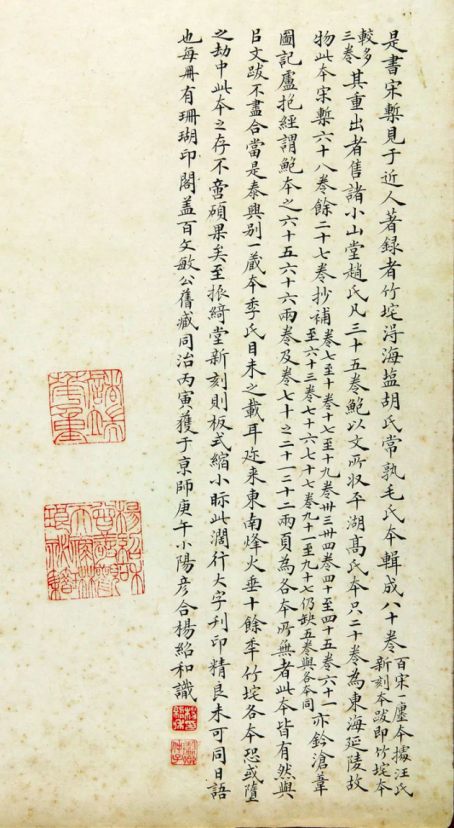 是書宋槧見于近人著録者竹垞淂海塩胡氏常孰毛氏本輯成八十卷百宋一廛本據汪氏新刻本跋即竹垞本
較多三卷其重出者售諸小山堂趙氏凡三十五卷鮑以文所収平湖高氏本只二十卷為東海延陵故
物此本宋槧六十八卷餘二十七卷抄補卷七至十卷十七至十九卷卅三卅四卷四十至四十五卷六十一至六十三卷七十六七十七卷九十一至九十七仍缺五卷與各本同亦鈐滄葦
圖記盧抱經謂鮑本之六十五六十六兩卷及卷七十之二十一二十二兩頁為各本所無者此本皆有然與
㠯文跋不盡合當是泰興别一藏本季氏目未之載耳迩来東南烽火垂十餘年竹垞各本恐或墮
之劫中此本之存不啻碩果矣至振綺堂新刻則板式縮小眎此濶行大字刋印精良未可同日語
也每冊有珊瑚印閣盖百文敏公舊藏同治丙寅獲于京師庚午小陽彥合楊紹和識